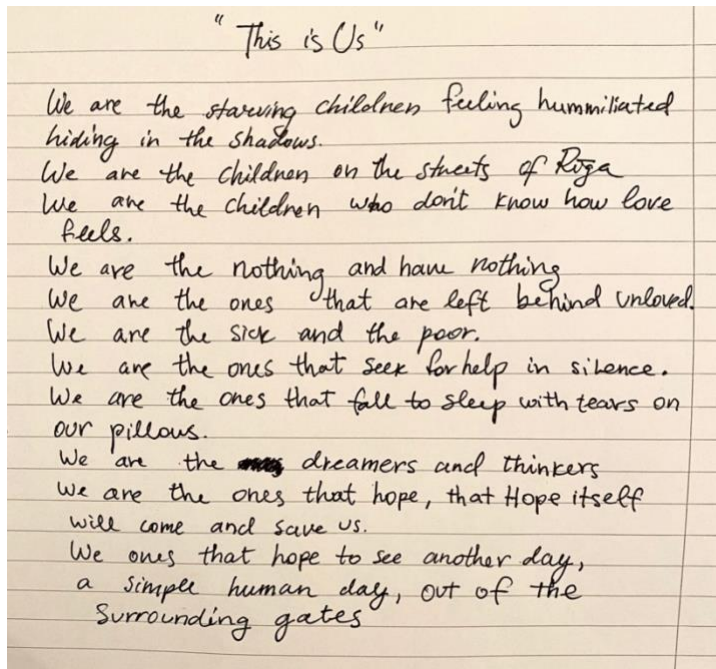 "This is Us"
We are the starving children feeling hummiliated
hiding in the shadows.
We are the children on the streets of Rīga
We are the children who don't know how love
feels.
We are the nothing and have nothing
We are the ones that are left behind unloved.
We are the sick and the poor.
We are the ones that seek for help in silence.
We are the ones that fall to sleep with tears on
our pillows.
We are the dreamers and thinkers
We are the ones that hope, that Hope itself
will come and save us.
We ones that hope to see another day,
a simple human day, out of the
surrounding gates